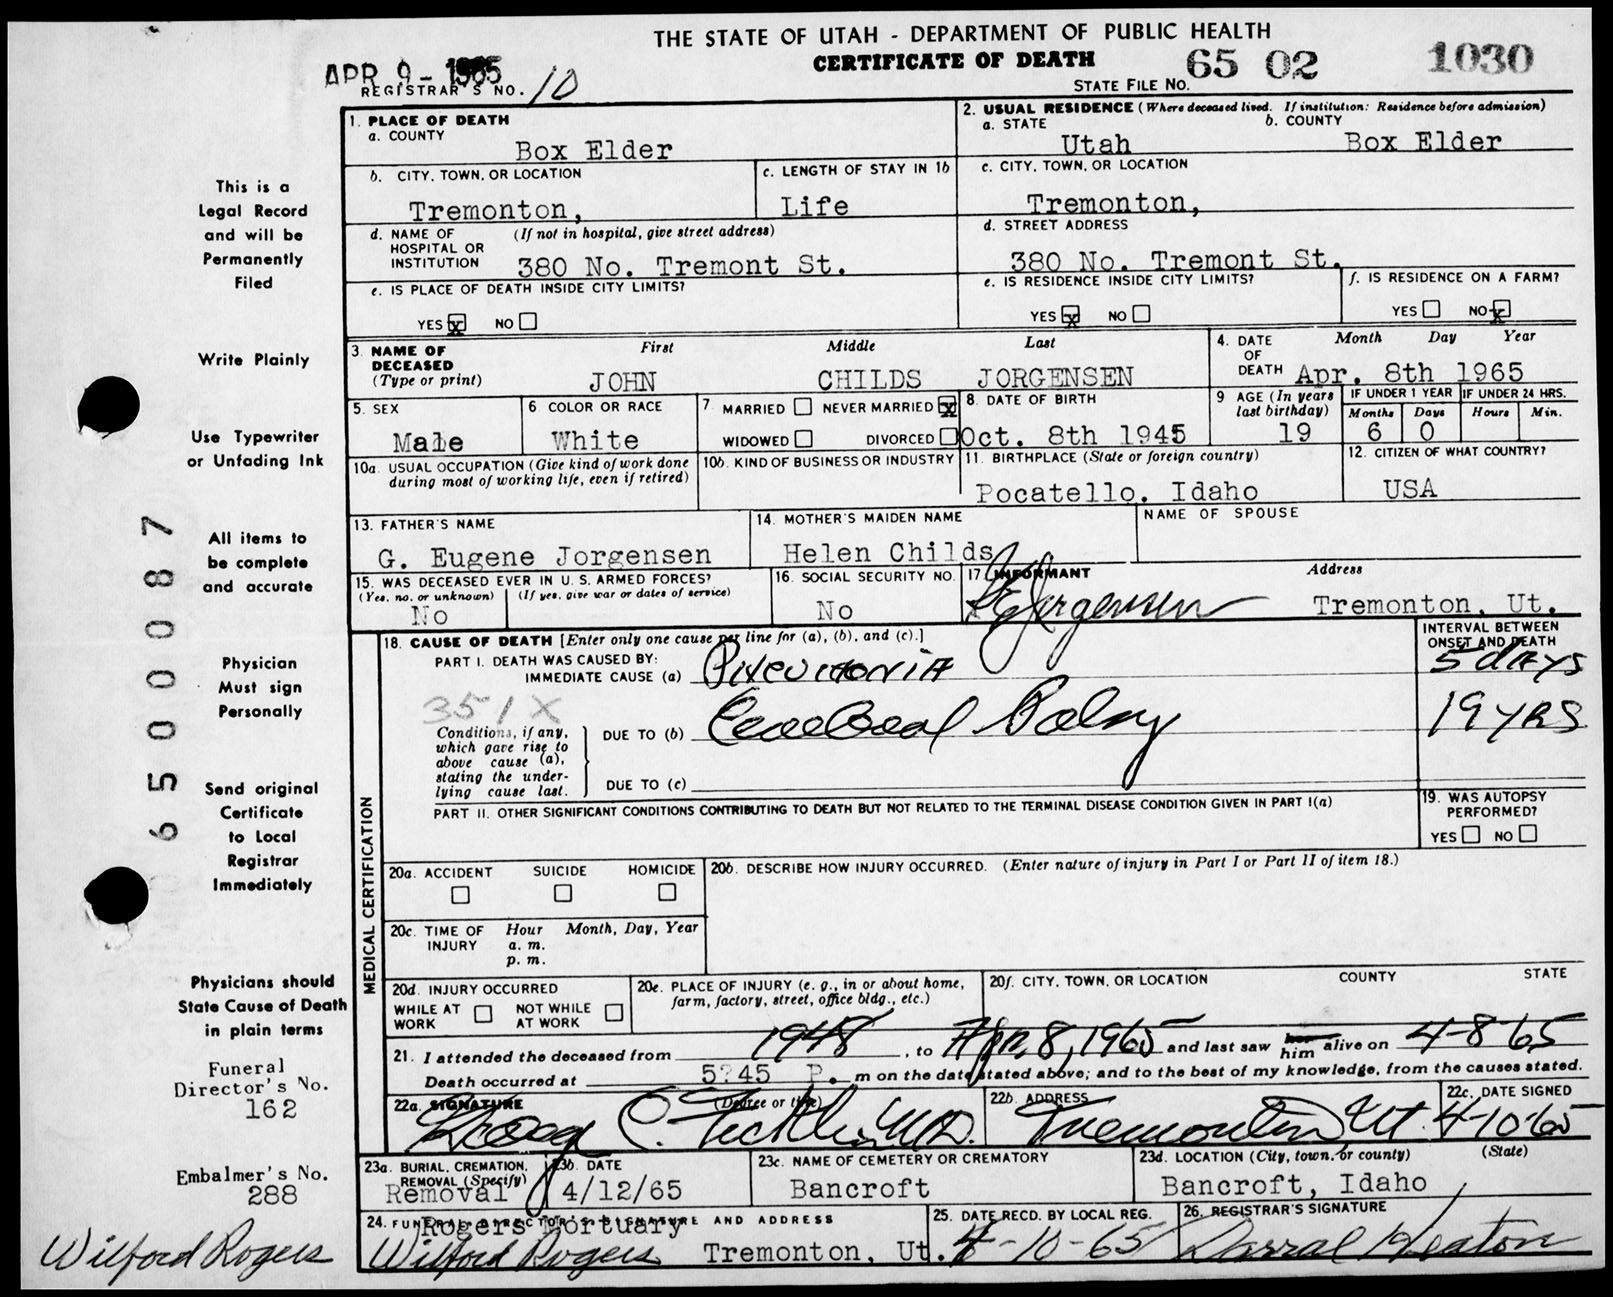 THE STATE OF UTAH - DEPARTMENT OF PUBLIC HEALTH
CERTIFICATE OF DEATH
APR 9 - 1965
REGISTRAR'S NO. 10
STATE FILE NO. 65 02 1030
This is a
Legal Record
and will be
Permanently
Filed
Write Plainly
Use Typewriter
or Unfading Ink
All items to
be complete
and accurate
Physician
Must sign
Personally
Send original
Certificate
to Local
Registrar
Immediately
Physicians should
State Cause of Death
in plain terms
Funeral
Director's No.
162
Embalmer's No.
288
Wilford Rogers
65 00087
1. PLACE OF DEATH
a. COUNTY
Box Elder
2. USUAL RESIDENCE (Where deceased lived. If institution: Residence before admission)
a. STATE b. COUNTY
Utah Box Elder
b. CITY, TOWN, OR LOCATION
Tremonton,
c. LENGTH OF STAY IN 1b
Life
c. CITY, TOWN, OR LOCATION
Tremonton,
d. NAME OF (If not in hospital, give street address)
HOSPITAL OR
INSTITUTION 380 No. Tremont St.
d. STREET ADDRESS
380 No. Tremont St.
e. IS PLACE OF DEATH INSIDE CITY LIMITS?
YES X NO
e. IS RESIDENCE INSIDE CITY LIMITS?
YES X NO
f. IS RESIDENCE ON A FARM?
YES NO X
3. NAME OF First Middle Last
DECEASED
(Type or print) JOHN CHILDS JORGENSEN
4. DATE Month Day Year
OF
DEATH Apr. 8th 1965
5. SEX
Male
6 COLOR OR RACE
White
7. MARRIED NEVER MARRIED X
WIDOWED DIVORCED
8. DATE OF BIRTH
Oct. 8th 1945
9 AGE (In years
last birthday)
19
IF UNDER 1 YEAR IF UNDER 24 HRS.
Months Days Hours Min.
6 0
10a. USUAL OCCUPATION (Give kind of work done
during most of working life, even if retired)
10b. KIND OF BUSINESS OR INDUSTRY
11. BIRTHPLACE (State or foreign country)
Pocatello, Idaho
12. CITIZEN OF WHAT COUNTRY?
USA
13. FATHER'S NAME
G. Eugene Jorgensen
14. MOTHER'S MAIDEN NAME
Helen Childs
NAME OF SPOUSE
15. WAS DECEASED EVER IN U. S. ARMED FORCES?
(Yes, no, or unknown) (If yes, give war or dates of service)
No
16. SOCIAL SECURITY NO.
No
17 INFORMANT Address
Jorgensen Tremonton, Ut.
18. CAUSE OF DEATH [Enter only one cause per line for (a), (b), and (c).]
INTERVAL BETWEEN
ONSET AND DEATH
PART I. DEATH WAS CAUSED BY:
IMMEDIATE CAUSE (a) Pneumonia 5 days
351X
Conditions, if any,
which gave rise to
above cause (a),
stating the under-
lying cause last.
DUE TO (b) Cerebral Palsy 19 yrs
DUE TO (c)
PART II. OTHER SIGNIFICANT CONDITIONS CONTRIBUTING TO DEATH BUT NOT RELATED TO THE TERMINAL DISEASE CONDITION GIVEN IN PART I(a)
19. WAS AUTOPSY
PERFORMED?
YES NO
MEDICAL CERTIFICATION
20a. ACCIDENT SUICIDE HOMICIDE
20b. DESCRIBE HOW INJURY OCCURRED. (Enter nature of injury in Part I or Part II of item 18.)
20c. TIME OF Hour Month, Day, Year
INJURY a. m.
p. m.
20d. INJURY OCCURRED
WHILE AT WORK NOT WHILE AT WORK
20e. PLACE OF INJURY (e. g., in or about home,
farm, factory, street, office bldg., etc.)
20f. CITY, TOWN, OR LOCATION COUNTY STATE
21. I attended the deceased from 1948, to Apr. 8, 1965 and last saw him alive on 4-8-65
Death occurred at 5:45 P. m on the date stated above; and to the best of my knowledge, from the causes stated.
22a. SIGNATURE (Degree or title)
C. M.D.
22b. ADDRESS
Tremonton Ut.
22c. DATE SIGNED
4-10-65
23a. BURIAL, CREMATION,
REMOVAL (Specify)
Removal
23b. DATE
4/12/65
23c. NAME OF CEMETERY OR CREMATORY
Bancroft
23d. LOCATION (City, town, or county) (State)
Bancroft, Idaho
24. FUNERAL DIRECTOR'S SIGNATURE AND ADDRESS
Rogers Mortuary
Wilford Rogers Tremonton, Ut.
25. DATE RECD. BY LOCAL REG.
4-10-65
26. REGISTRAR'S SIGNATURE
Darral Heaton